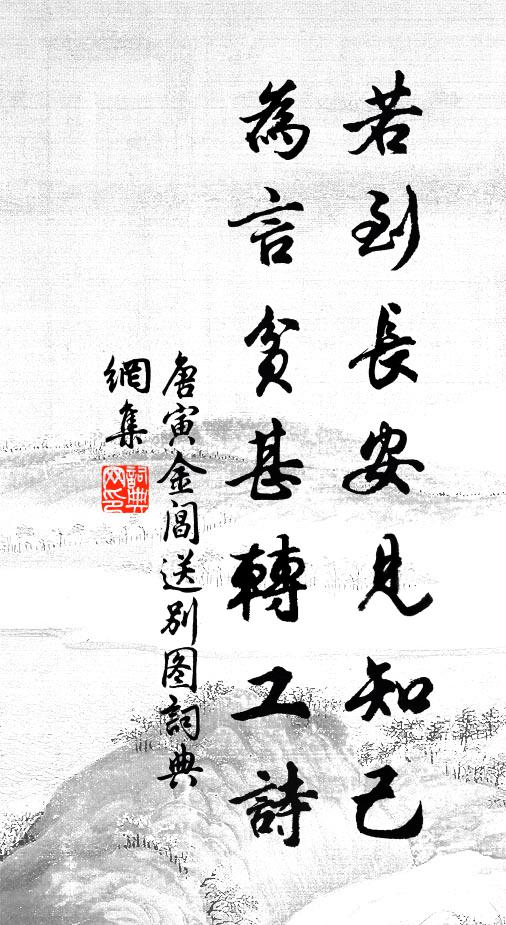 若到長安見知己
為言貧甚轉工詩
唐寅金閶送別图詞典
網集
詞典
网印